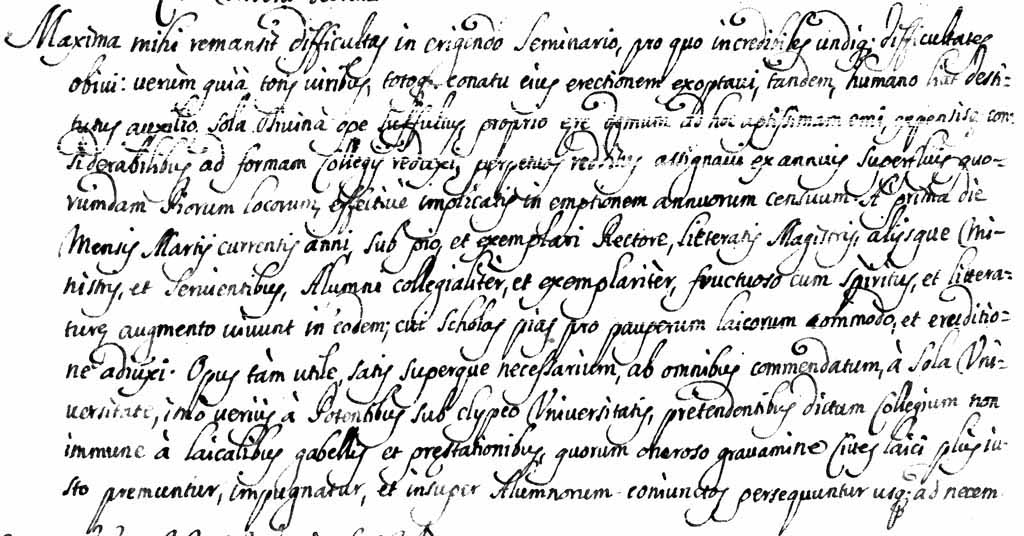 Maxima mihi remansit difficultas in erigendo Seminario, pro quo incredibiles undiq; difficultates
obivi: verùm quià totis viribus, totoq; conatu eius erectionem exoptavi, tandem, humano licèt desti-
tutus auxilio, sola Divina ope suffultus, proprio ere domum ad hoc aptissimam emi, expensisq; con-
siderabilibus ad formam Collegij reduxi, perpetuos redditus assignavi ex annuis superfluis quo-
rumdam Piorum locorum, effectivè implicatis in emptionem annuorum censuum. A prima die
Mensis Martij currentis anni, sub pio, et exemplari Rectore, litteratis Magistris, alijsque Mi-
nistris, et Servientibus, Alumni collegialitèr, et exemplaritèr, fructuoso cum spiritus, et littera-
turę augmento vivunt in eodem; cui scholas pias pro pauperum laicorum commodo, et eruditio-
ne adiuxi. Opus tàm utile, satis superque necessarium, ab omnibus commendatum, à sola Uni-
versitate, imò veriùs à Potentibus sub clypeo Universitatis, prętendentibus dictum Collegium non
immune à laicalibus gabellis et pręstationibus, quorum oneroso gravamine Cives laici plùs iu-
sto premuntur, impugnatur, et insuper Alumnorum coniunctos persequuntur usq; ad necem